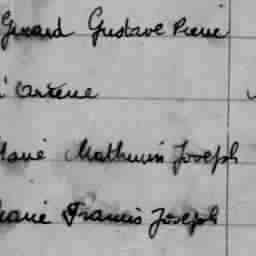 Gerard Gustave Pierre
Arsene
Marie Mathurin Joseph
Marie Francis Joseph